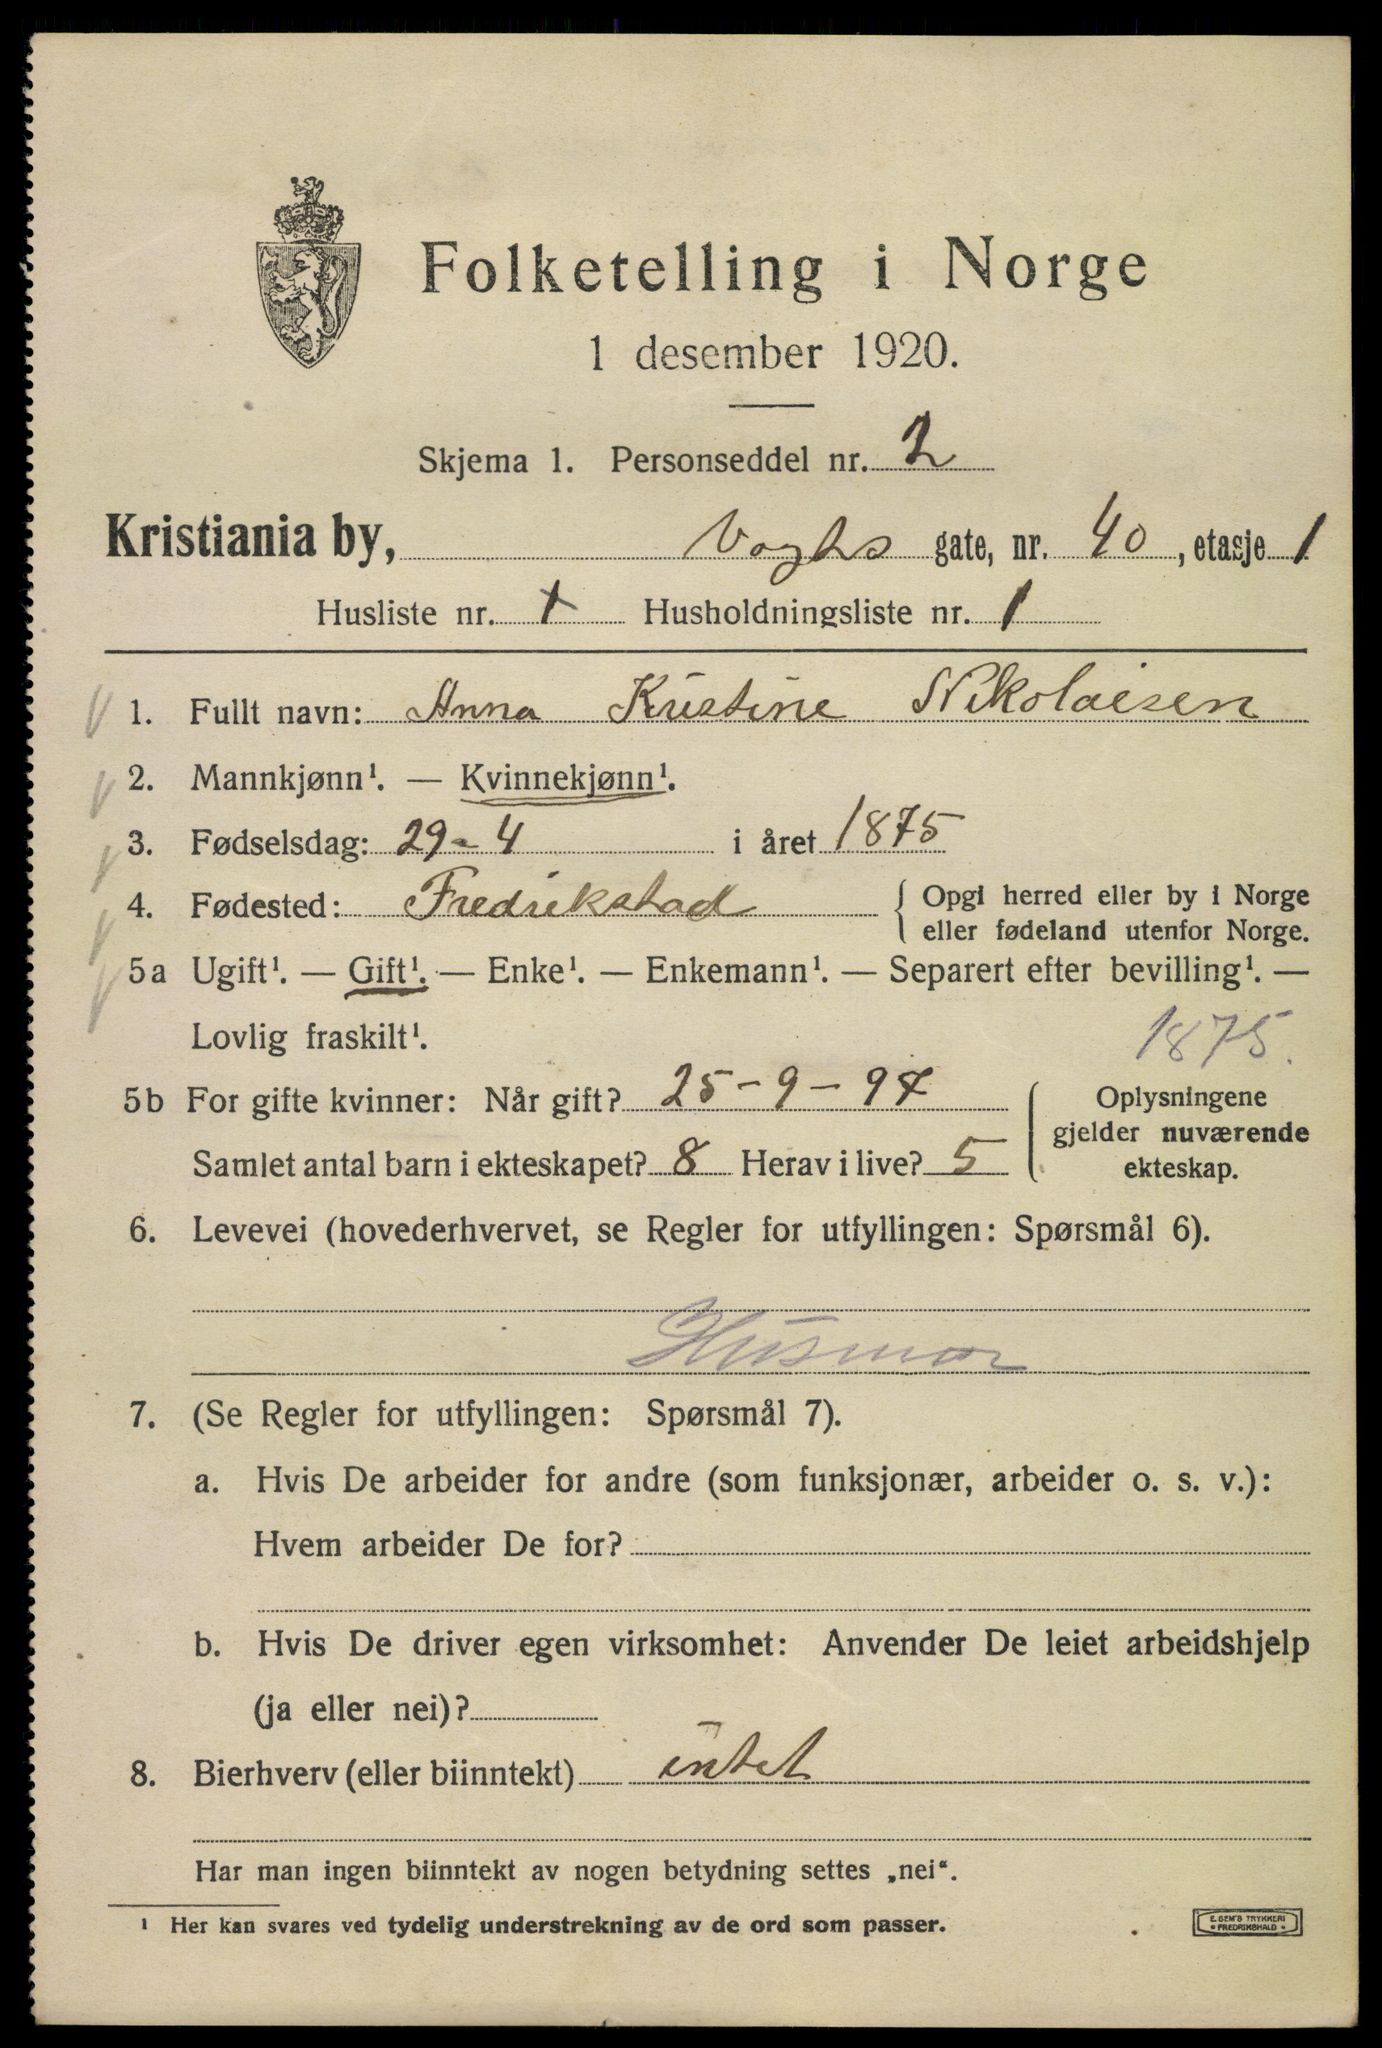 Folketelling i Norge
1 desember 1920.
Skjema 1. Personseddel nr. 2
Kristiania by, Vogts gate, nr. 40, etasje 1
Husliste nr. 1 Husholdningsliste nr. 1
1. Fullt navn: Anna Kristine Nikolaisen
2. Mannkjønn¹. — Kvinnekjønn¹.
3. Fødselsdag: 29-4 i året 1875
4. Fødested: Fredrikstad { Opgi herred eller by i Norge
eller fødeland utenfor Norge.
5a Ugift¹. — Gift¹. — Enke¹. — Enkemann¹. — Separert efter bevilling¹. —
Lovlig fraskilt¹. 1875.
5b For gifte kvinner: Når gift? 25-9-97 { Oplysningene
gjelder nuværende
Samlet antal barn i ekteskapet? 8 Herav i live? 5 ekteskap.
6. Levevei (hovederhvervet, se Regler for utfyllingen: Spørsmål 6).
Husmor
7. (Se Regler for utfyllingen: Spørsmål 7).
a. Hvis De arbeider for andre (som funksjonær, arbeider o. s. v.):
Hvem arbeider De for?
b. Hvis De driver egen virksomhet: Anvender De leiet arbeidshjelp
(ja eller nei)?
8. Bierhverv (eller biinntekt) intet
Har man ingen biinntekt av nogen betydning settes „nei“.
¹ Her kan svares ved tydelig understrekning av de ord som passer.
E. SEM'S TRYKKERI
• FREDRIKSHALD •